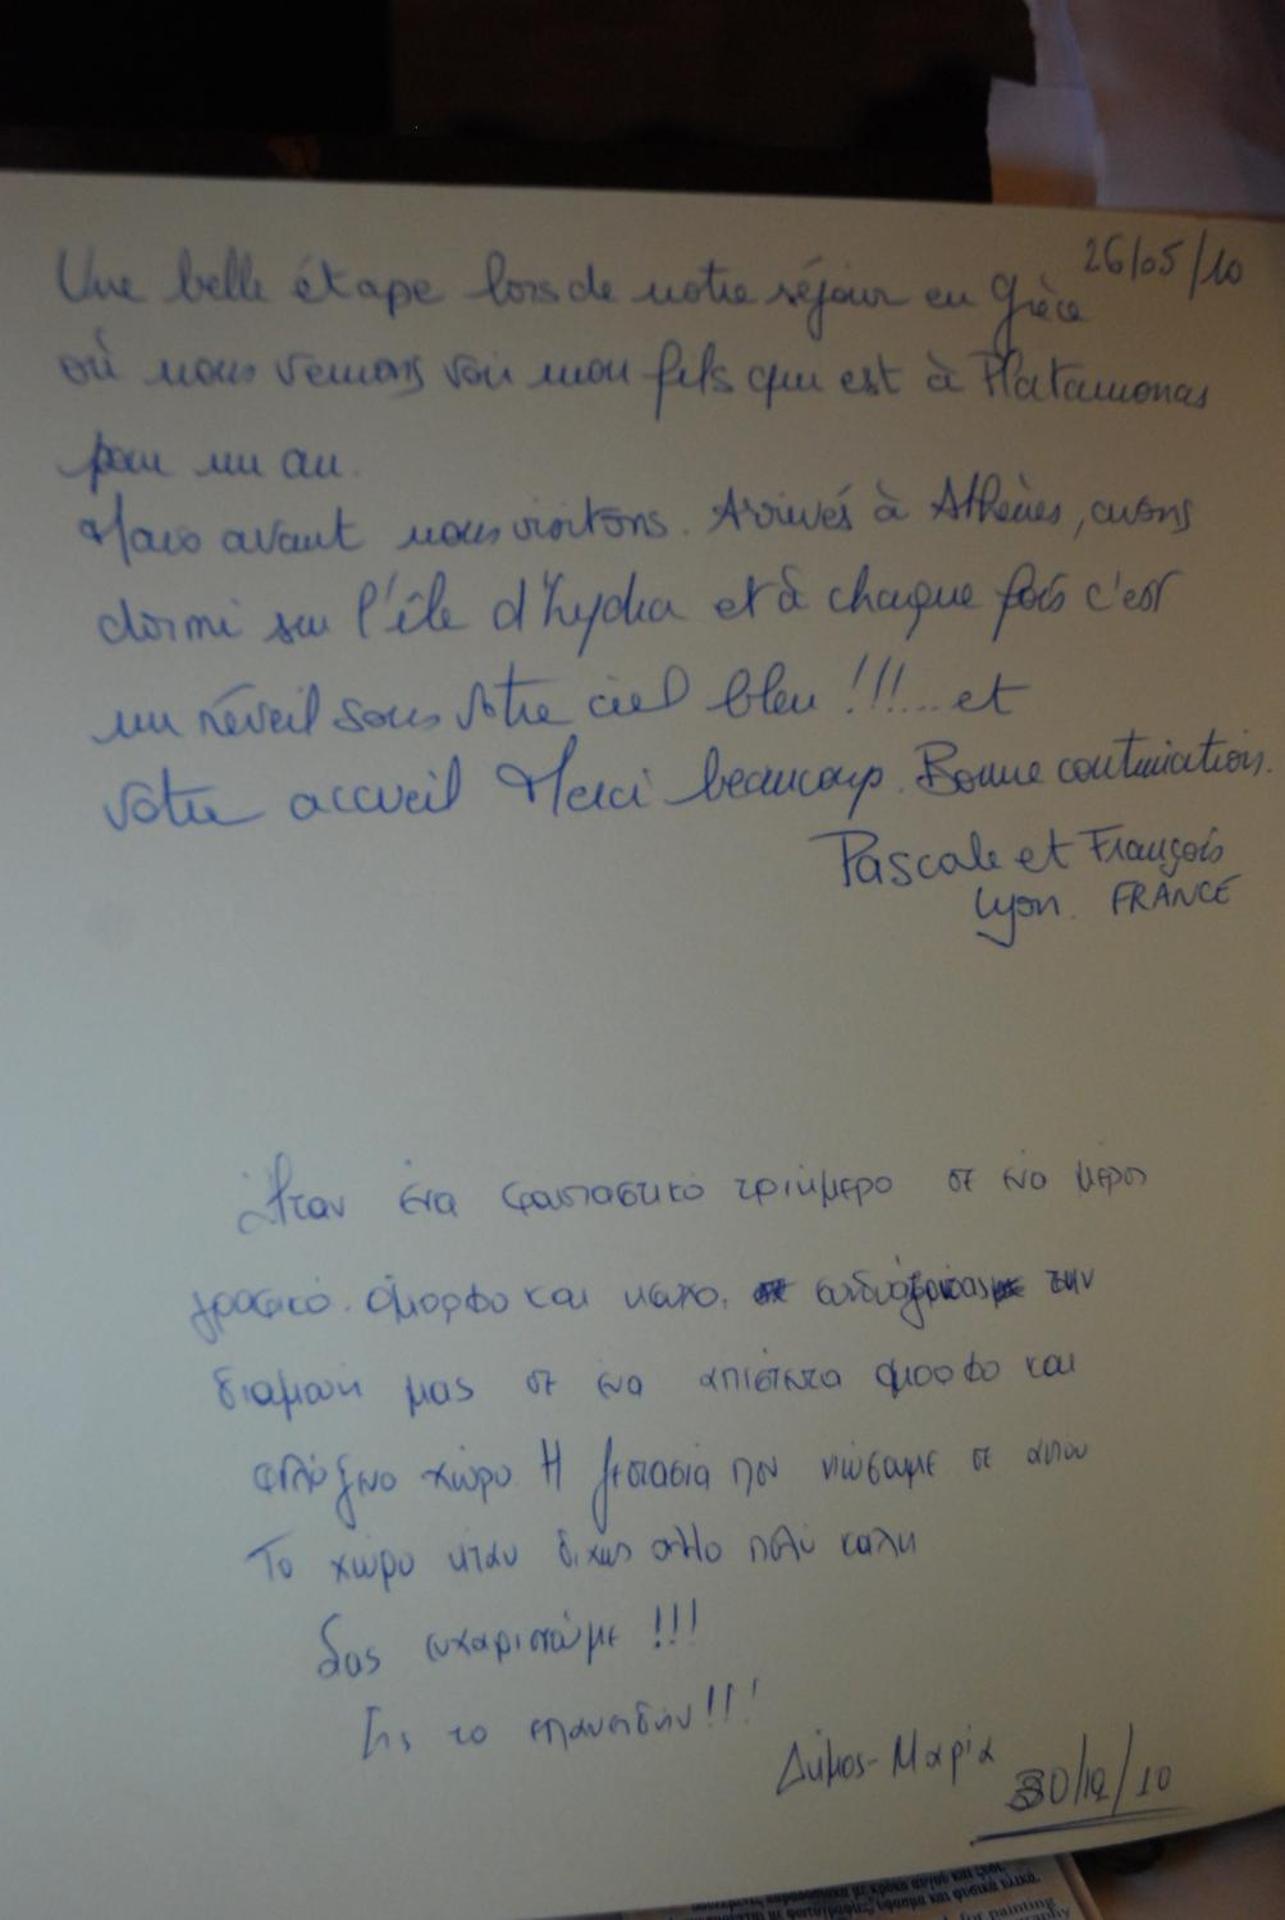 26/05/10
Une belle étape lors de notre séjour en Grèce
où nous venons voir mon fils qui est à Platamonas
pour un an.
Mais avant nous visitons. Arrivés à Athènes, avons
dormi sur l'île d'Hydra et à chaque fois c'est
un réveil sous votre ciel bleu !!!.... et
votre accueil Merci beaucoup. Bonne continuation.
Pascale et François
Lyon. FRANCE
Ήταν ένα φανταστικό τριήμερο σε ένα μέρος
γραφικό. όμορφο και την
διαμονή μας σε ένα απίστευτα όμορφο και
φιλόξενο χώρο. Η ζεστασιά που νιώσαμε σε αυτόν
το χώρο ήταν δίχως άλλο πολύ καλή
Σας ευχαριστούμε !!!
Εις το επανειδήν!!!
Δήμος-Μαρία
30/12/10
for painting